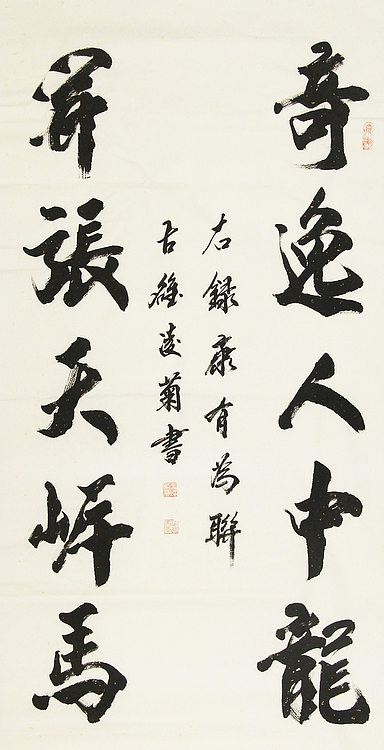 奇逸人中龍
開張天岸馬
右録康有為聯
古菊書